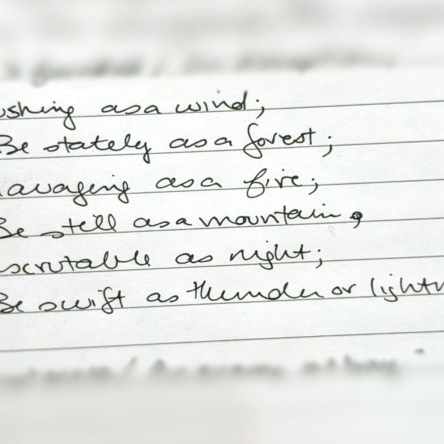 ushing as a wind;
Be stately as a forest;
avaging as a fire;
Be still as a mountain,
scrutable as night;
Be swift as thunder or lightn